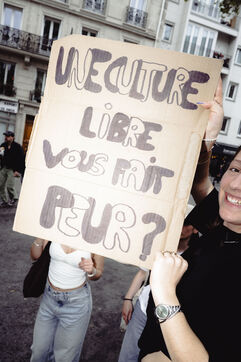 UNE CULTURE
LIBRE
VOUS FAIT
PEUR?